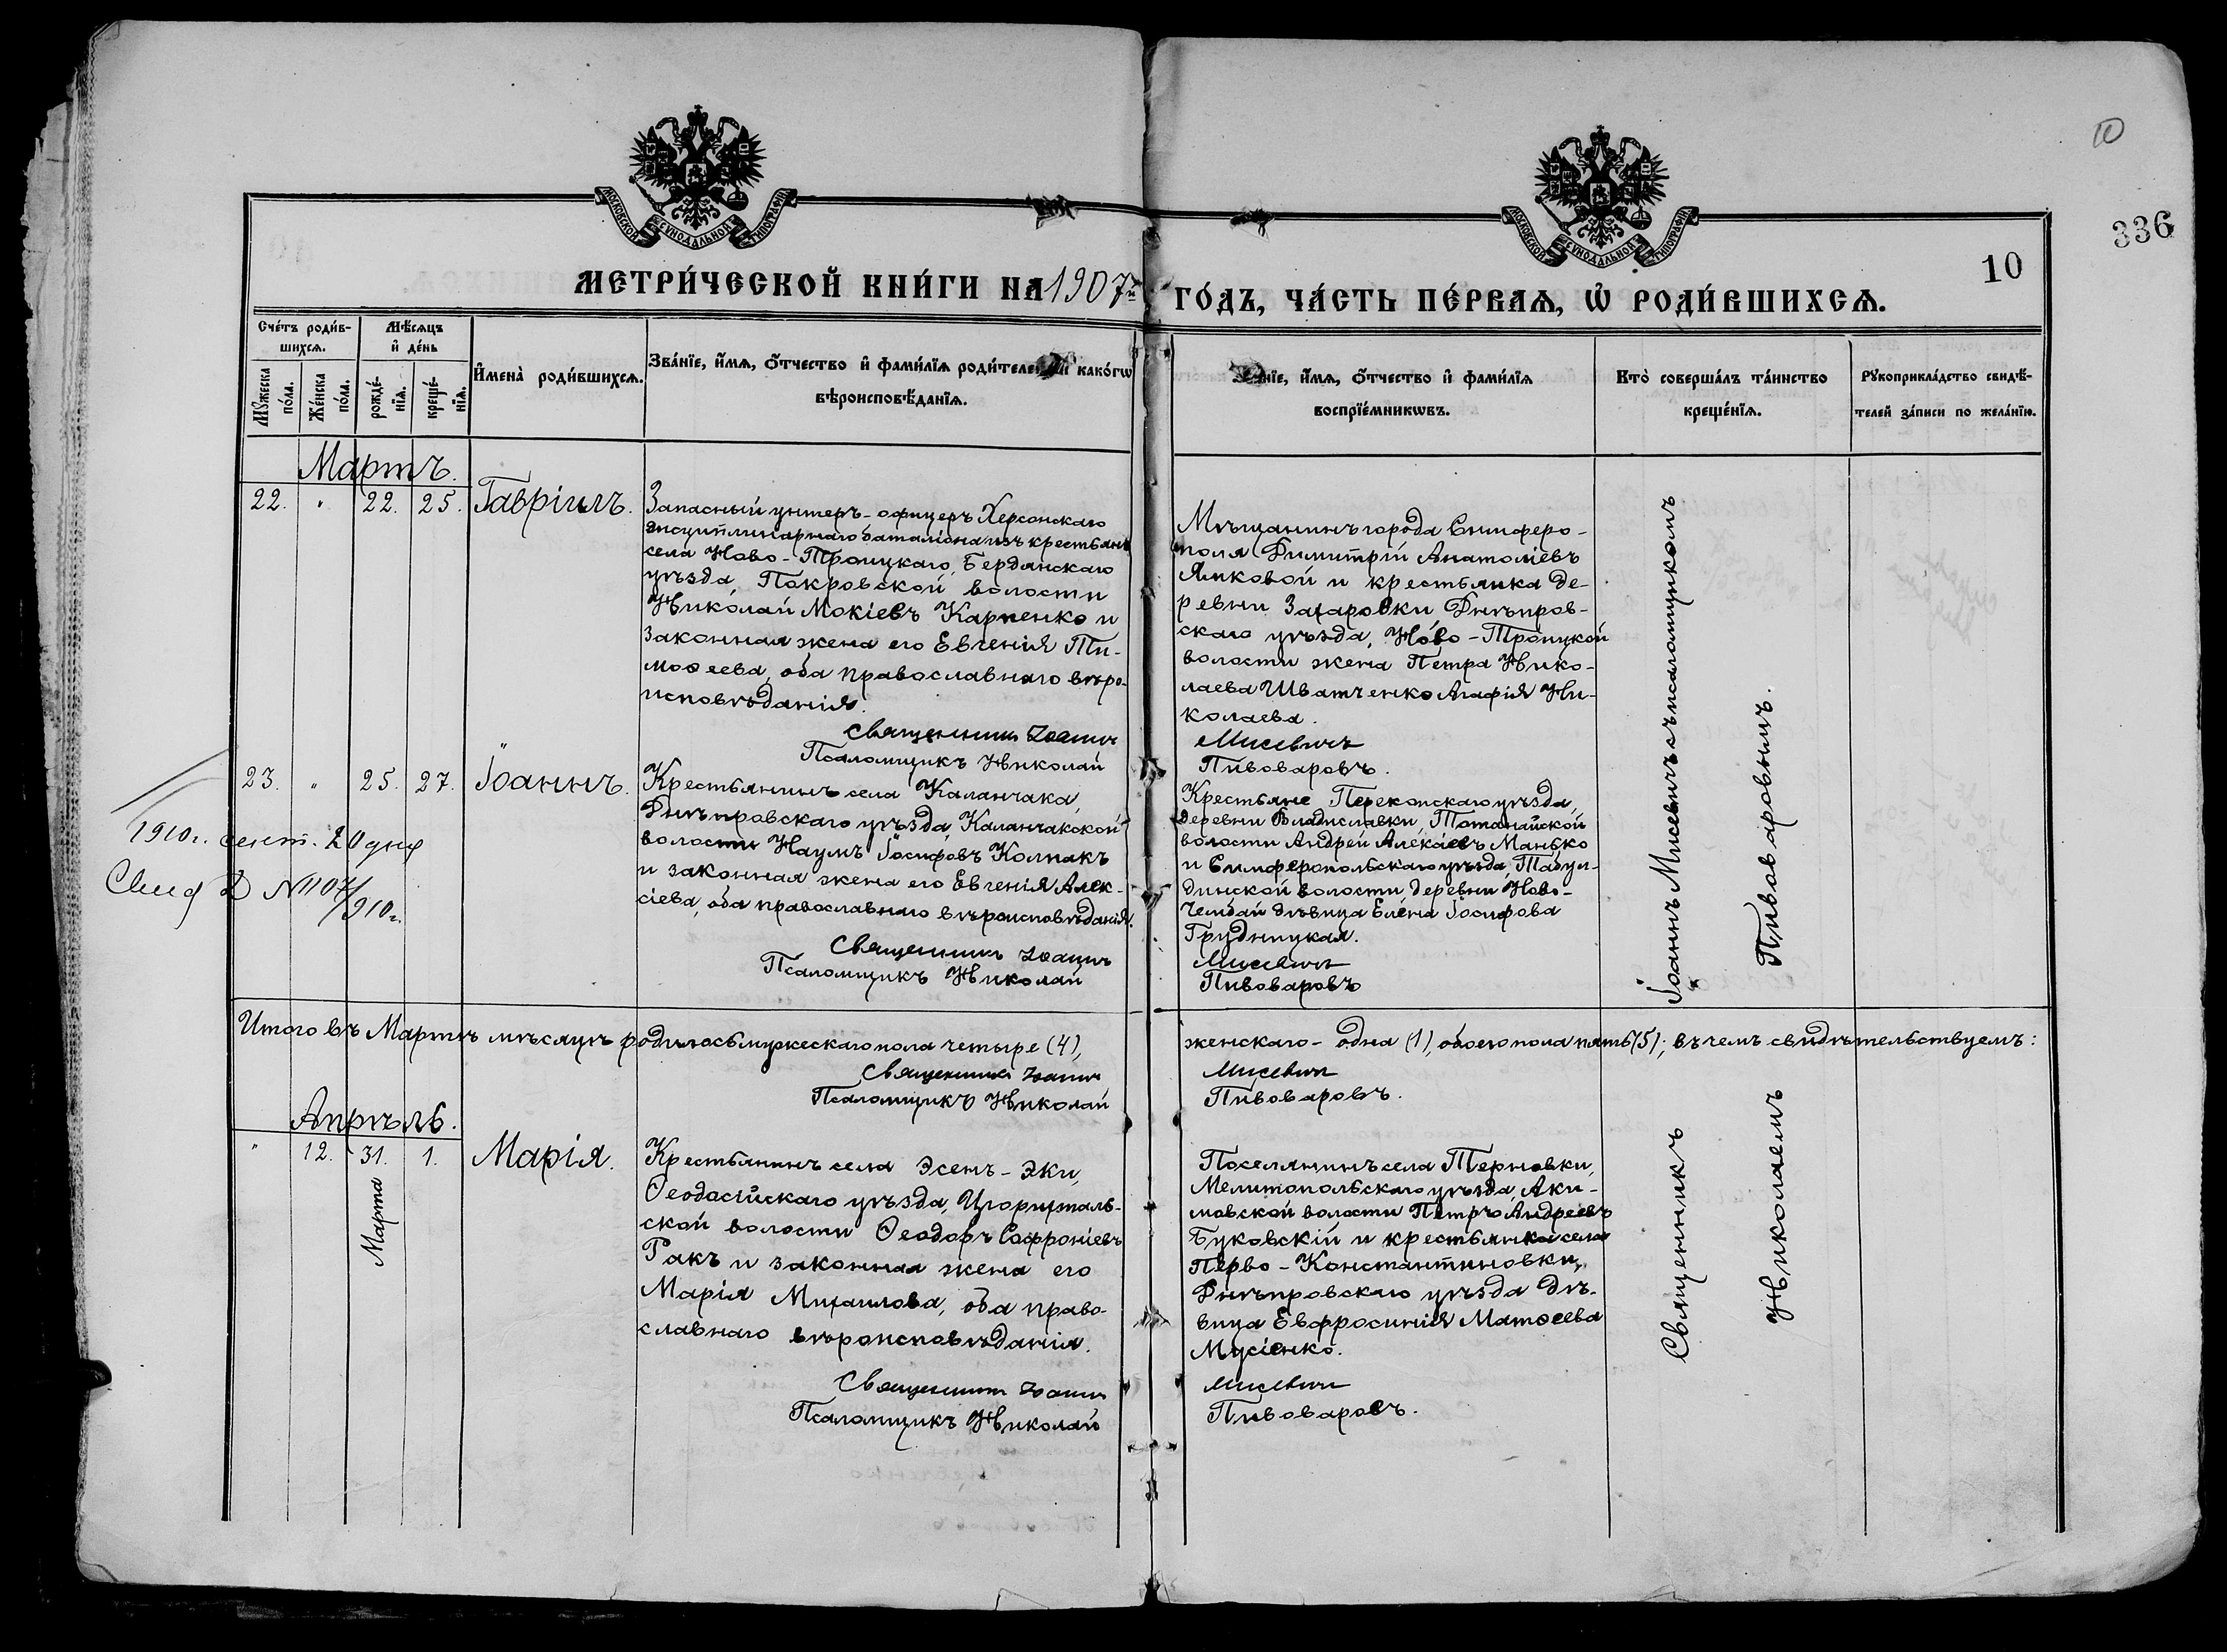 10
336
10
МОСКОВСКОЙ СѴНОДАЛЬНОЙ ТИПОГРАФІИ
МОСКОВСКОЙ СѴНОДАЛЬНОЙ ТИПОГРАФІИ
МЕТРИ́ЧЕСКОЙ КНИ́ГИ НА 1907й
ГО́ДЪ, ЧА́СТЬ ПЕ́РВАѦ, Ѡ҆ РОДИ́ВШИХСѦ.
Сче́тъ роди́в-
шихсѧ.
Мѣ́сѧцъ
и҆ де́нь
Мꙋ́жеска
по́ла.
Же́нска
по́ла.
рожде́-
нїѧ.
креще́-
нїѧ.
И҆мена̀ роди́вшихсѧ.
Зва́нїе, и҆́мѧ, ѻ҆́тчество и҆ фами́лїѧ роди́телей и҆ како́гѡ
вѣроисповѣ́данїѧ.
Зва́нїе, и҆́мѧ, ѻ҆́тчество и҆ фами́лїѧ
воспрїе́мникѡвъ.
Кто̀ соверша́лъ та́инство
креще́нїѧ.
Рꙋкоприкла́дство свидѣ́-
телей за́писи по жела́нїю.
Мартъ.
22. " 22. 25. Гавріилъ.
Запасный унтеръ-офицеръ Херсонскаго
дисциплинарнаго баталіона изъ крестьянъ
села Ново-Троицкаго, Бердянскаго
уѣзда, Покровской волости
Николай Мокіевъ Карпенко и
законная жена его Евгенія Ти-
моѳеева, оба православнаго вѣро-
исповѣданія.
Священникъ Іоаннъ
Псаломщикъ Николай
Мѣщанинъ города Симферо-
поля Димитрій Анатоліевъ
Ямковой и крестьянка де-
ревни Захаровки, Днѣпров-
скаго уѣзда, Ново-Троицкой
волости жена Петра Нико-
лаева Шватченко Агафія Ни-
колаева.
Мисевичъ
Пивоваровъ.
23. " 25. 27. Іоаннъ.
Крестьянинъ села Каланчака,
Днѣпровскаго уѣзда, Каланчакской
волости Наумъ Іосифовъ Колпакъ
и законная жена его Евгенія Алек-
сіева, оба православнаго вѣроисповѣданія.
Священникъ Іоаннъ
Псаломщикъ Николай
Крестьяне Перекопскаго уѣзда,
деревни Владиславки, Тотанайской
волости Андрей Алексіевъ Манько
и Симферопольскаго уѣзда, Табул-
динской волости, деревни Ново-
Чембай дѣвица Елена Іосифова
Грудницкая.
Мисевичъ
Пивоваровъ
1910 г. сент. 20 дня
Свид № 1107/910 г.
Іоаннъ Мисевичъ съ псаломщикомъ
Пивоваровымъ.
Итого въ Мартѣ мѣсяцѣ родилось мужескаго пола четыре (4),
женскаго - одна (1), обоего пола пять (5); въ чемъ свидѣтельствуемъ:
Священникъ Іоаннъ
Псаломщикъ Николай
Мисевичъ
Пивоваровъ.
Апрѣль.
" 12. 31. 1. Марія.
Марта
Крестьянинъ села Эсенъ-Эки,
Ѳеодосійскаго уѣзда, Цюрихталь-
ской волости Ѳеодоръ Софроніевъ
Ракъ и законная жена его
Марія Михаилова, оба право-
славнаго вѣроисповѣданія.
Священникъ Іоаннъ
Псаломщикъ Николай
Поселянинъ села Терновки,
Мелитопольскаго уѣзда, Аки-
мовской волости Петръ Андреевъ
Буковскій и крестьянка села
Перво-Константиновки,
Днѣпровскаго уѣзда дѣ-
вица Евфросинія Матѳеева
Мусіенко.
Мисевичъ
Пивоваровъ.
Священникъ
Николаемъ